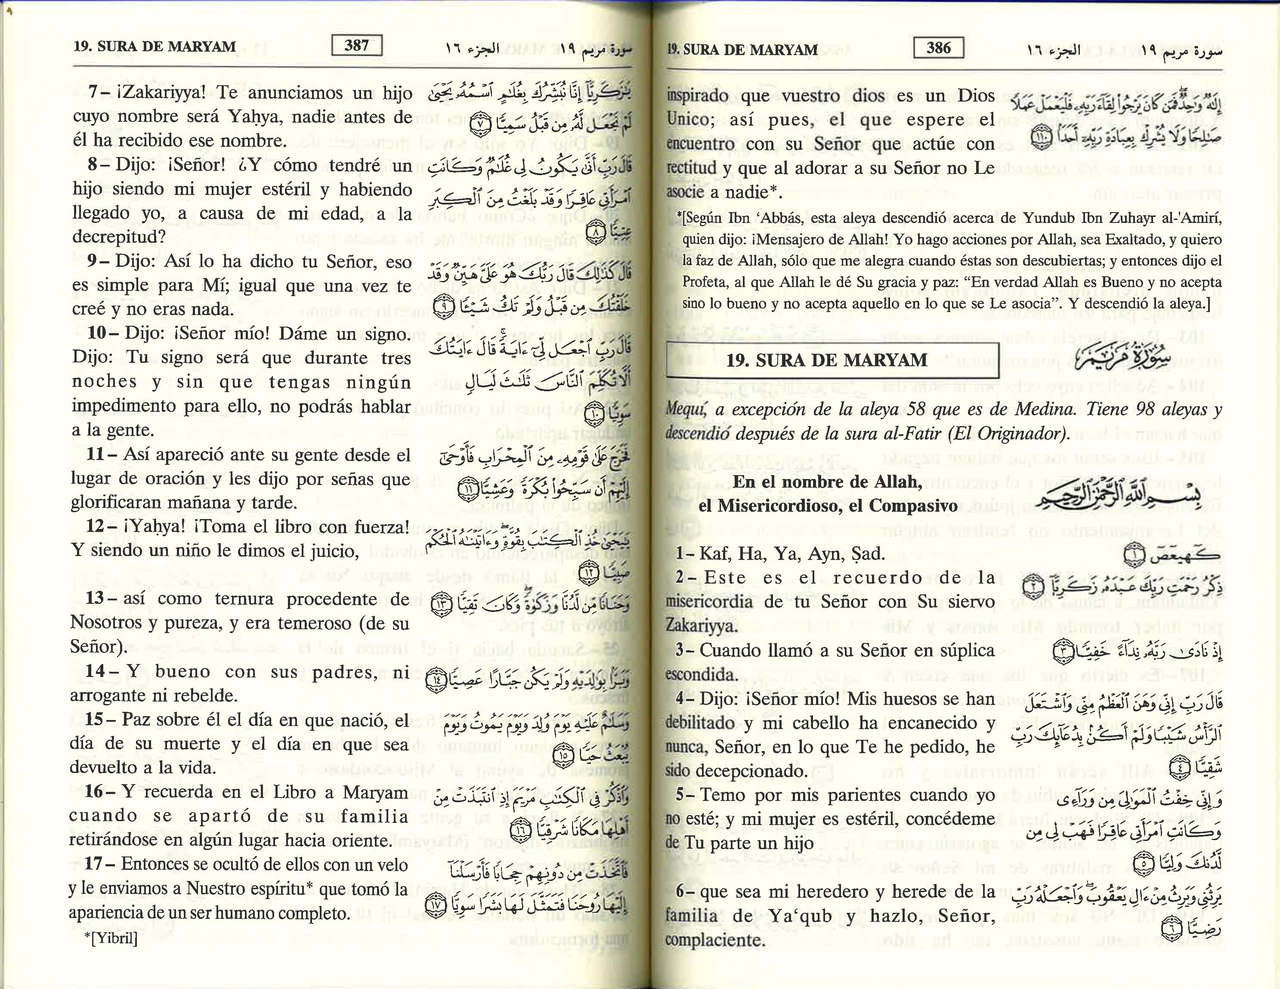 19. SURA DE MARYAM
386
الجزء ١٦
سورة مريم ١٩
inspirado que vuestro dios es un Dios
Unico; así pues, el que espere el
encuentro con su Señor que actúe con
rectitud y que al adorar a su Señor no Le
asocie a nadie*.
إِلَٰهٌ وَٰحِدٌ فَمَن كَانَ يَرْجُوا۟ لِقَآءَ رَبِّهِۦ فَلْيَعْمَلْ عَمَلًا
صَٰلِحًا وَلَا يُشْرِكْ بِعِبَادَةِ رَبِّهِۦٓ أَحَدًۢا ١١٠
*[Según Ibn ‘Abbás, esta aleya descendió acerca de Yundub Ibn Zuhayr al-'Amirí,
quien dijo: ¡Mensajero de Allah! Yo hago acciones por Allah, sea Exaltado, y quiero
la faz de Allah, sólo que me alegra cuando éstas son descubiertas; y entonces dijo el
Profeta, al que Allah le dé Su gracia y paz: “En verdad Allah es Bueno y no acepta
sino lo bueno y no acepta aquello en lo que se Le asocia”. Y descendió la aleya.]
19. SURA DE MARYAM
سُورَةُ مَرْيَمَ
Mequí, a excepción de la aleya 58 que es de Medina. Tiene 98 aleyas y
descendió después de la sura al-Fatir (El Originador).
En el nombre de Allah,
el Misericordioso, el Compasivo
بِسْمِ ٱللَّهِ ٱلرَّحْمَٰنِ ٱلرَّحِيمِ
1– Kaf, Ha, Ya, Ayn, Ṣad.
2– Este es el recuerdo de la
misericordia de tu Señor con Su siervo
Zakariyya.
3– Cuando llamó a su Señor en súplica
escondida.
4– Dijo: ¡Señor mío! Mis huesos se han
debilitado y mi cabello ha encanecido y
nunca, Señor, en lo que Te he pedido, he
sido decepcionado.
5– Temo por mis parientes cuando yo
no esté; y mi mujer es estéril, concédeme
de Tu parte un hijo
6– que sea mi heredero y herede de la
familia de Ya‘qub y hazlo, Señor,
complaciente.
كٓهيعٓصٓ ١
ذِكْرُ رَحْمَتِ رَبِّكَ عَبْدَهُۥ زَكَرِيَّآ ٢
إِذْ نَادَىٰ رَبَّهُۥ نِدَآءً خَفِيًّا ٣
قَالَ رَبِّ إِنِّى وَهَنَ ٱلْعَظْمُ مِنِّى وَٱشْتَعَلَ
ٱلرَّأْسُ شَيْبًا وَلَمْ أَكُنۢ بِدُعَآئِكَ رَبِّ
شَقِيًّا ٤
وَإِنِّى خِفْتُ ٱلْمَوَٰلِىَ مِن وَرَآءِى
وَكَانَتِ ٱمْرَأَتِى عَاقِرًا فَهَبْ لِى مِن
لَّدُنكَ وَلِيًّا ٥
يَرِثُنِى وَيَرِثُ مِنْ ءَالِ يَعْقُوبَ وَٱجْعَلْهُ رَبِّ
رَضِيًّا ٦
19. SURA DE MARYAM
387
الجزء ١٦
سورة مريم ١٩
7– ¡Zakariyya! Te anunciamos un hijo
cuyo nombre será Yaḥya, nadie antes de
él ha recibido ese nombre.
8– Dijo: ¡Señor! ¿Y cómo tendré un
hijo siendo mi mujer estéril y habiendo
llegado yo, a causa de mi edad, a la
decrepitud?
9– Dijo: Así lo ha dicho tu Señor, eso
es simple para Mí; igual que una vez te
creé y no eras nada.
10– Dijo: ¡Señor mío! Dáme un signo.
Dijo: Tu signo será que durante tres
noches y sin que tengas ningún
impedimento para ello, no podrás hablar
a la gente.
11– Así apareció ante su gente desde el
lugar de oración y les dijo por señas que
glorificaran mañana y tarde.
12– ¡Yaḥya! ¡Toma el libro con fuerza!
Y siendo un niño le dimos el juicio,
13– así como ternura procedente de
Nosotros y pureza, y era temeroso (de su
Señor).
14– Y bueno con sus padres, ni
arrogante ni rebelde.
15– Paz sobre él el día en que nació, el
día de su muerte y el día en que sea
devuelto a la vida.
16– Y recuerda en el Libro a Maryam
cuando se apartó de su familia
retirándose en algún lugar hacia oriente.
17– Entonces se ocultó de ellos con un velo
y le enviamos a Nuestro espíritu* que tomó la
apariencia de un ser humano completo.
*[Yibril]
يَٰزَكَرِيَّآ إِنَّا نُبَشِّرُكَ بِغُلَٰمٍ ٱسْمُهُۥ يَحْيَىٰ
لَمْ نَجْعَل لَّهُۥ مِن قَبْلُ سَمِيًّا ٧
قَالَ رَبِّ أَنَّىٰ يَكُونُ لِى غُلَٰمٌ وَكَانَتِ
ٱمْرَأَتِى عَاقِرًا وَقَدْ بَلَغْتُ مِنَ ٱلْكِبَرِ
عِتِيًّا ٨
قَالَ كَذَٰلِكَ قَالَ رَبُّكَ هُوَ عَلَىَّ هَيِّنٌ وَقَدْ
خَلَقْتُكَ مِن قَبْلُ وَلَمْ تَكُ شَيْـًٔا ٩
قَالَ رَبِّ ٱجْعَل لِّىٓ ءَايَةً قَالَ ءَايَتُكَ
أَلَّا تُكَلِّمَ ٱلنَّاسَ ثَلَٰثَ لَيَالٍ
سَوِيًّا ١٠
فَخَرَجَ عَلَىٰ قَوْمِهِۦ مِنَ ٱلْمِحْرَابِ فَأَوْحَىٰٓ
إِلَيْهِمْ أَن سَبِّحُوا۟ بُكْرَةً وَعَشِيًّا ١١
يَٰيَحْيَىٰ خُذِ ٱلْكِتَٰبَ بِقُوَّةٍ وَءَاتَيْنَٰهُ ٱلْحُكْمَ
صَبِيًّا ١٢
وَحَنَانًا مِّن لَّدُنَّا وَزَكَوٰةً وَكَانَ تَقِيًّا ١٣
وَبَرًّۢا بِوَٰلِدَيْهِ وَلَمْ يَكُن جَبَّارًا عَصِيًّا ١٤
وَسَلَٰمٌ عَلَيْهِ يَوْمَ وُلِدَ وَيَوْمَ يَمُوتُ وَيَوْمَ
يُبْعَثُ حَيًّا ١٥
وَٱذْكُرْ فِى ٱلْكِتَٰبِ مَرْيَمَ إِذِ ٱنتَبَذَتْ مِنْ
أَهْلِهَا مَكَانًا شَرْقِيًّا ١٦
فَٱتَّخَذَتْ مِن دُونِهِمْ حِجَابًا فَأَرْسَلْنَآ
إِلَيْهَا رُوحَنَا فَتَمَثَّلَ لَهَا بَشَرًا سَوِيًّا ١٧